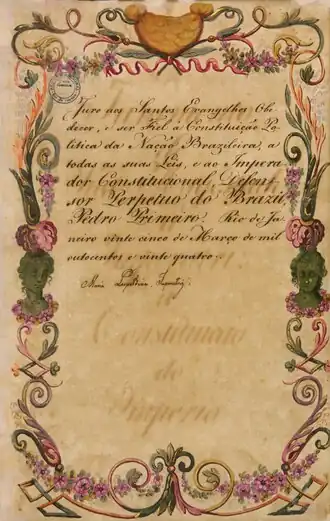 Juro aos Santos Evangelhos Obe-
decer, e ser Fiel á Constituição Po-
litica da Nação Brazileira, a
todas as suas Leis, e ao Impera-
dor Constitucional, Defen-
sor Perpetuo do Brazil
Pedro Primeiro. Rio de Ja-
neiro vinte cinco de Março de mil
outocentos e vinte quatro.
Maria Leopoldina
Constituição
do
Imperio